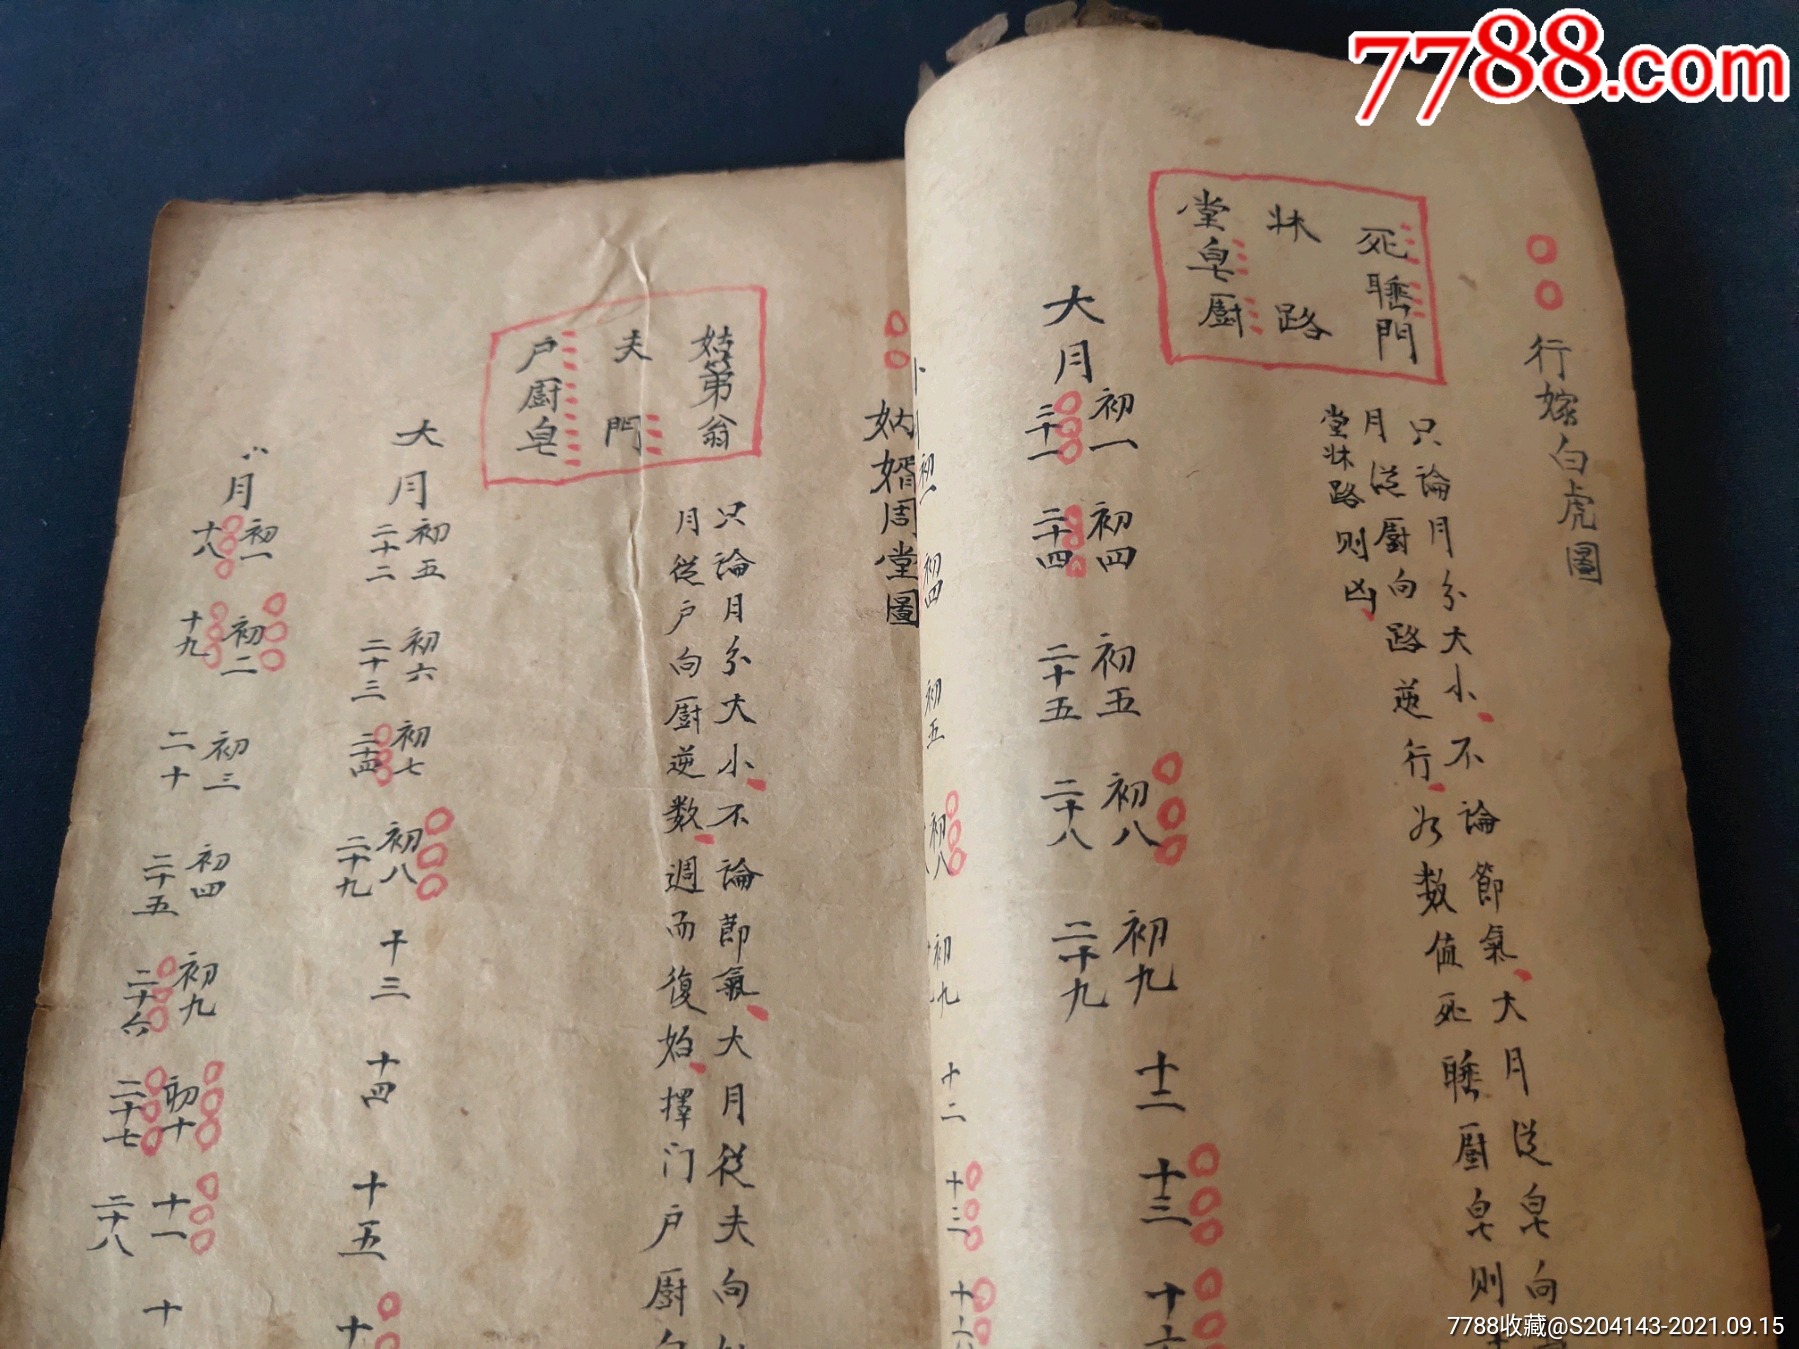 7788.com
行嫁白虎圖
死睡門
牀路
堂皂厨
只論月分大小不論節氣大月從皂向
月從厨向路逆行次数值死睡厨皂則
堂牀路則凶
大月
初一
三十一
初四
二十四
初五
二十五
初八
二十八
初九
二十九
十二
十三
十六
初一
初四
初五
初八
初九
十二
十三
十六
姑婿周堂圖
姑第翁
夫門
户厨皂
只論月分大小不論節氣大月從夫向
月從户向厨逆数週而復始擇门户厨
大月
初五
二十二
初六
二十三
初七
二十四
初八
二十九
十三
十四
十五
十
月
初一
十八
初二
十九
初三
二十
初四
二十五
初九
二十六
初十
二十七
十一
二十八
十
7788收藏@S204143-2021.09.15